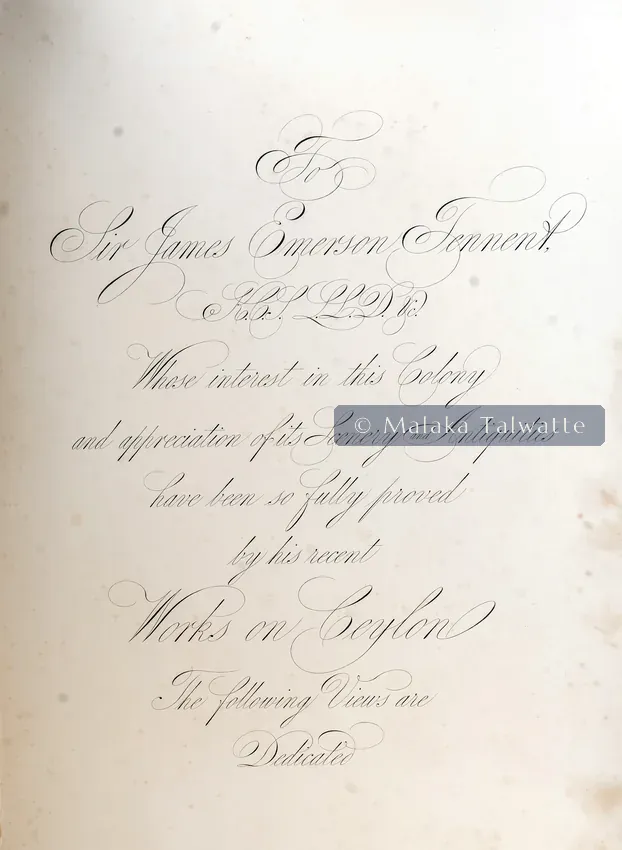 To
Sir James Emerson Tennent,
K.C.S. LL.D. &c.
Whose interest in this Colony
and appreciation of its Scenery and Antiquities
© Malaka Talwatte
have been so fully proved
by his recent
Works on Ceylon
The following Views are
Dedicated